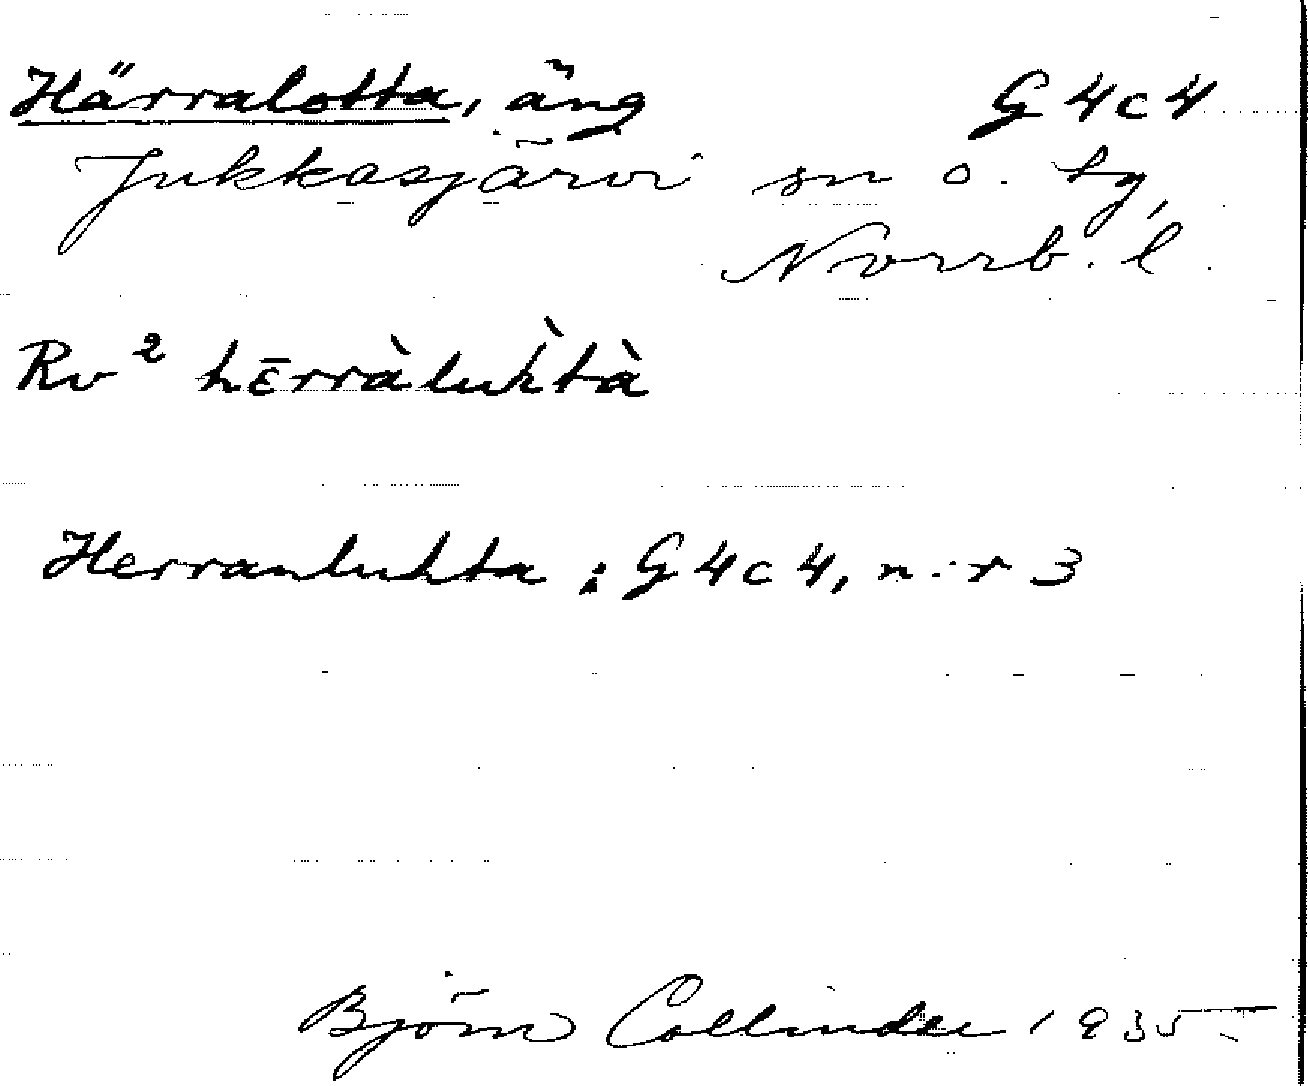 Härralotta, äng G4c4
Jukkasjärvi sn o. tg,
Norrb. l.
Rv² hɛ̄rràluh̀tà
Herranluhta: G4c4, n:r 3
Björn Collinder 1935